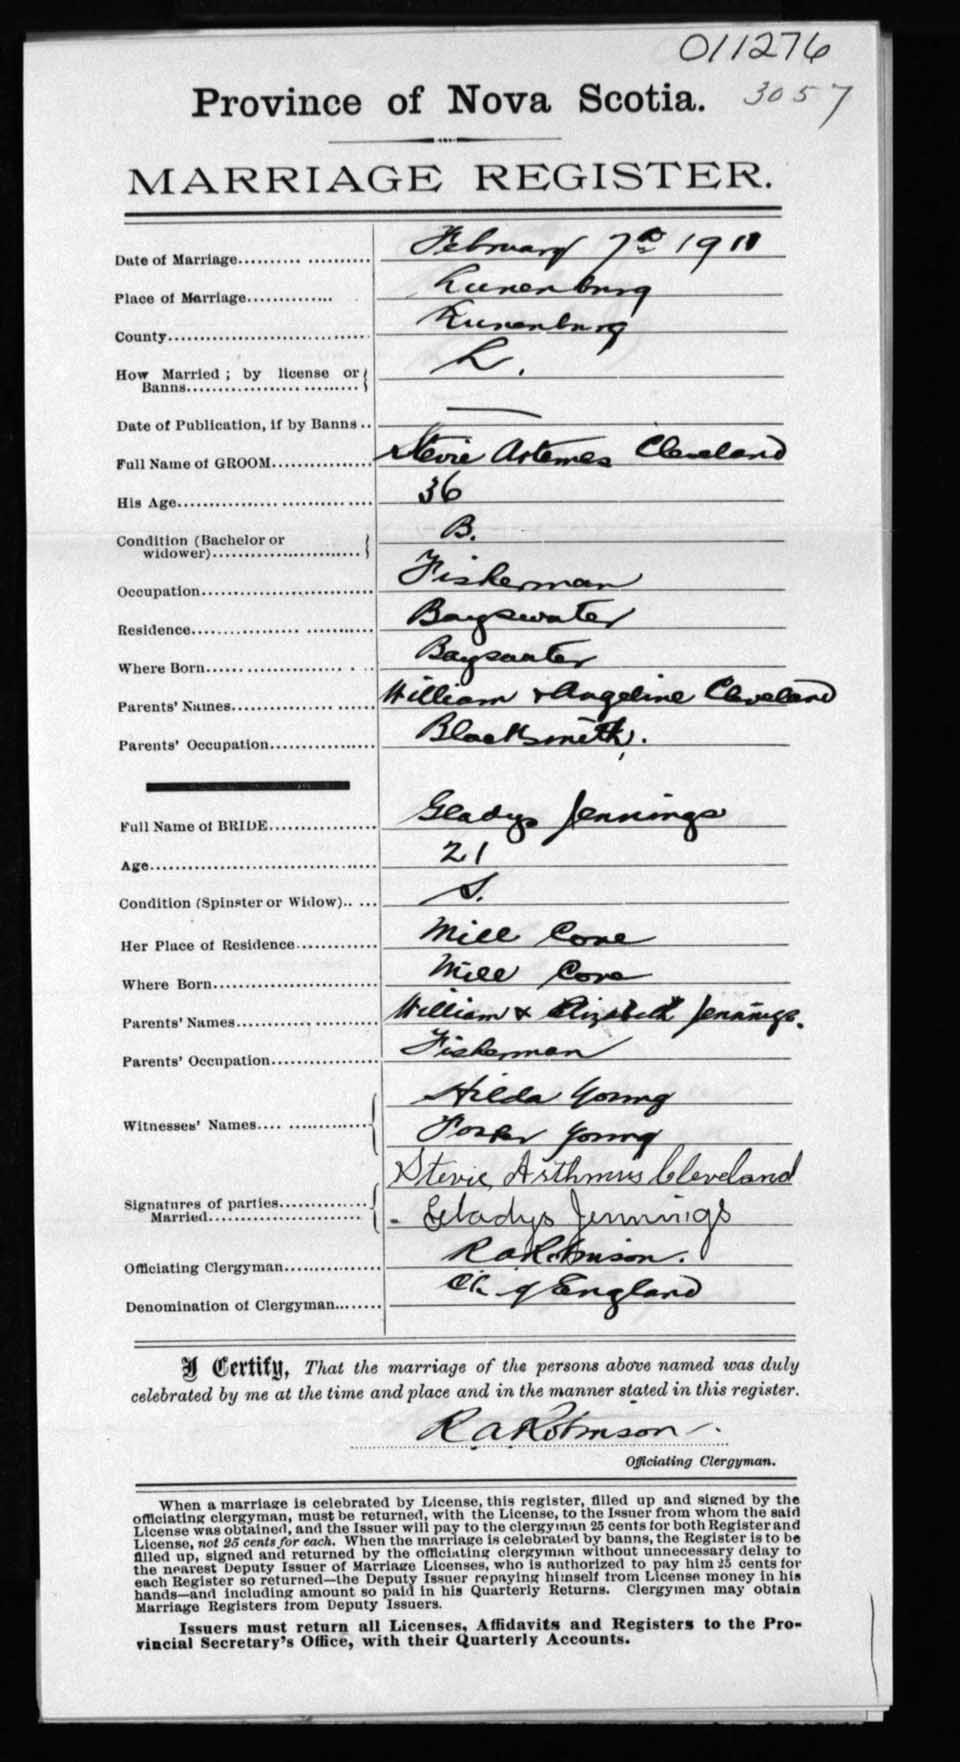 011276
Province of Nova Scotia. 3057
MARRIAGE REGISTER.
Date of Marriage.......... February 7th 1911
Place of Marriage............. Lunenburg
County.............................. Lunenburg
How Married ; by license or
Banns.............................. L.
Date of Publication, if by Banns .. —
Full Name of GROOM............... Stevie Artemes Cleveland
His Age............................. 36
Condition (Bachelor or
widower)......................... B.
Occupation.......................... Fisherman
Residence........................... Bayswater
Where Born.......................... Bayswater
Parents' Names...................... William & Angeline Cleveland
Parents' Occupation................ Blacksmith.
Full Name of BRIDE................ Gladys Jennings
Age................................. 21
Condition (Spinster or Widow)..... S.
Her Place of Residence............ Mill Cove
Where Born.......................... Mill Cove
Parents' Names...................... William & Elizabeth Jennings.
Parents' Occupation................ Fisherman
Hilda Young
Witnesses' Names....................
Foster Young
Stevie Arthmus Cleveland
Signatures of parties..............
Married......................... Gladys Jennings
Officiating Clergyman.............. R A Robinson.
Denomination of Clergyman........ Ch. of England
I Certify, That the marriage of the persons above named was duly
celebrated by me at the time and place and in the manner stated in this register.
R A Robinson.
Officiating Clergyman.
When a marriage is celebrated by License, this register, filled up and signed by the
officiating clergyman, must be returned, with the License, to the Issuer from whom the said
License was obtained, and the Issuer will pay to the clergyman 25 cents for both Register and
License, not 25 cents for each. When the marriage is celebrated by banns, the Register is to be
filled up, signed and returned by the officiating clergyman without unnecessary delay to
the nearest Deputy Issuer of Marriage Licenses, who is authorized to pay him 25 cents for
each Register so returned—the Deputy Issuer repaying himself from License money in his
hands—and including amount so paid in his Quarterly Returns. Clergymen may obtain
Marriage Registers from Deputy Issuers.
Issuers must return all Licenses, Affidavits and Registers to the Pro-
vincial Secretary's Office, with their Quarterly Accounts.